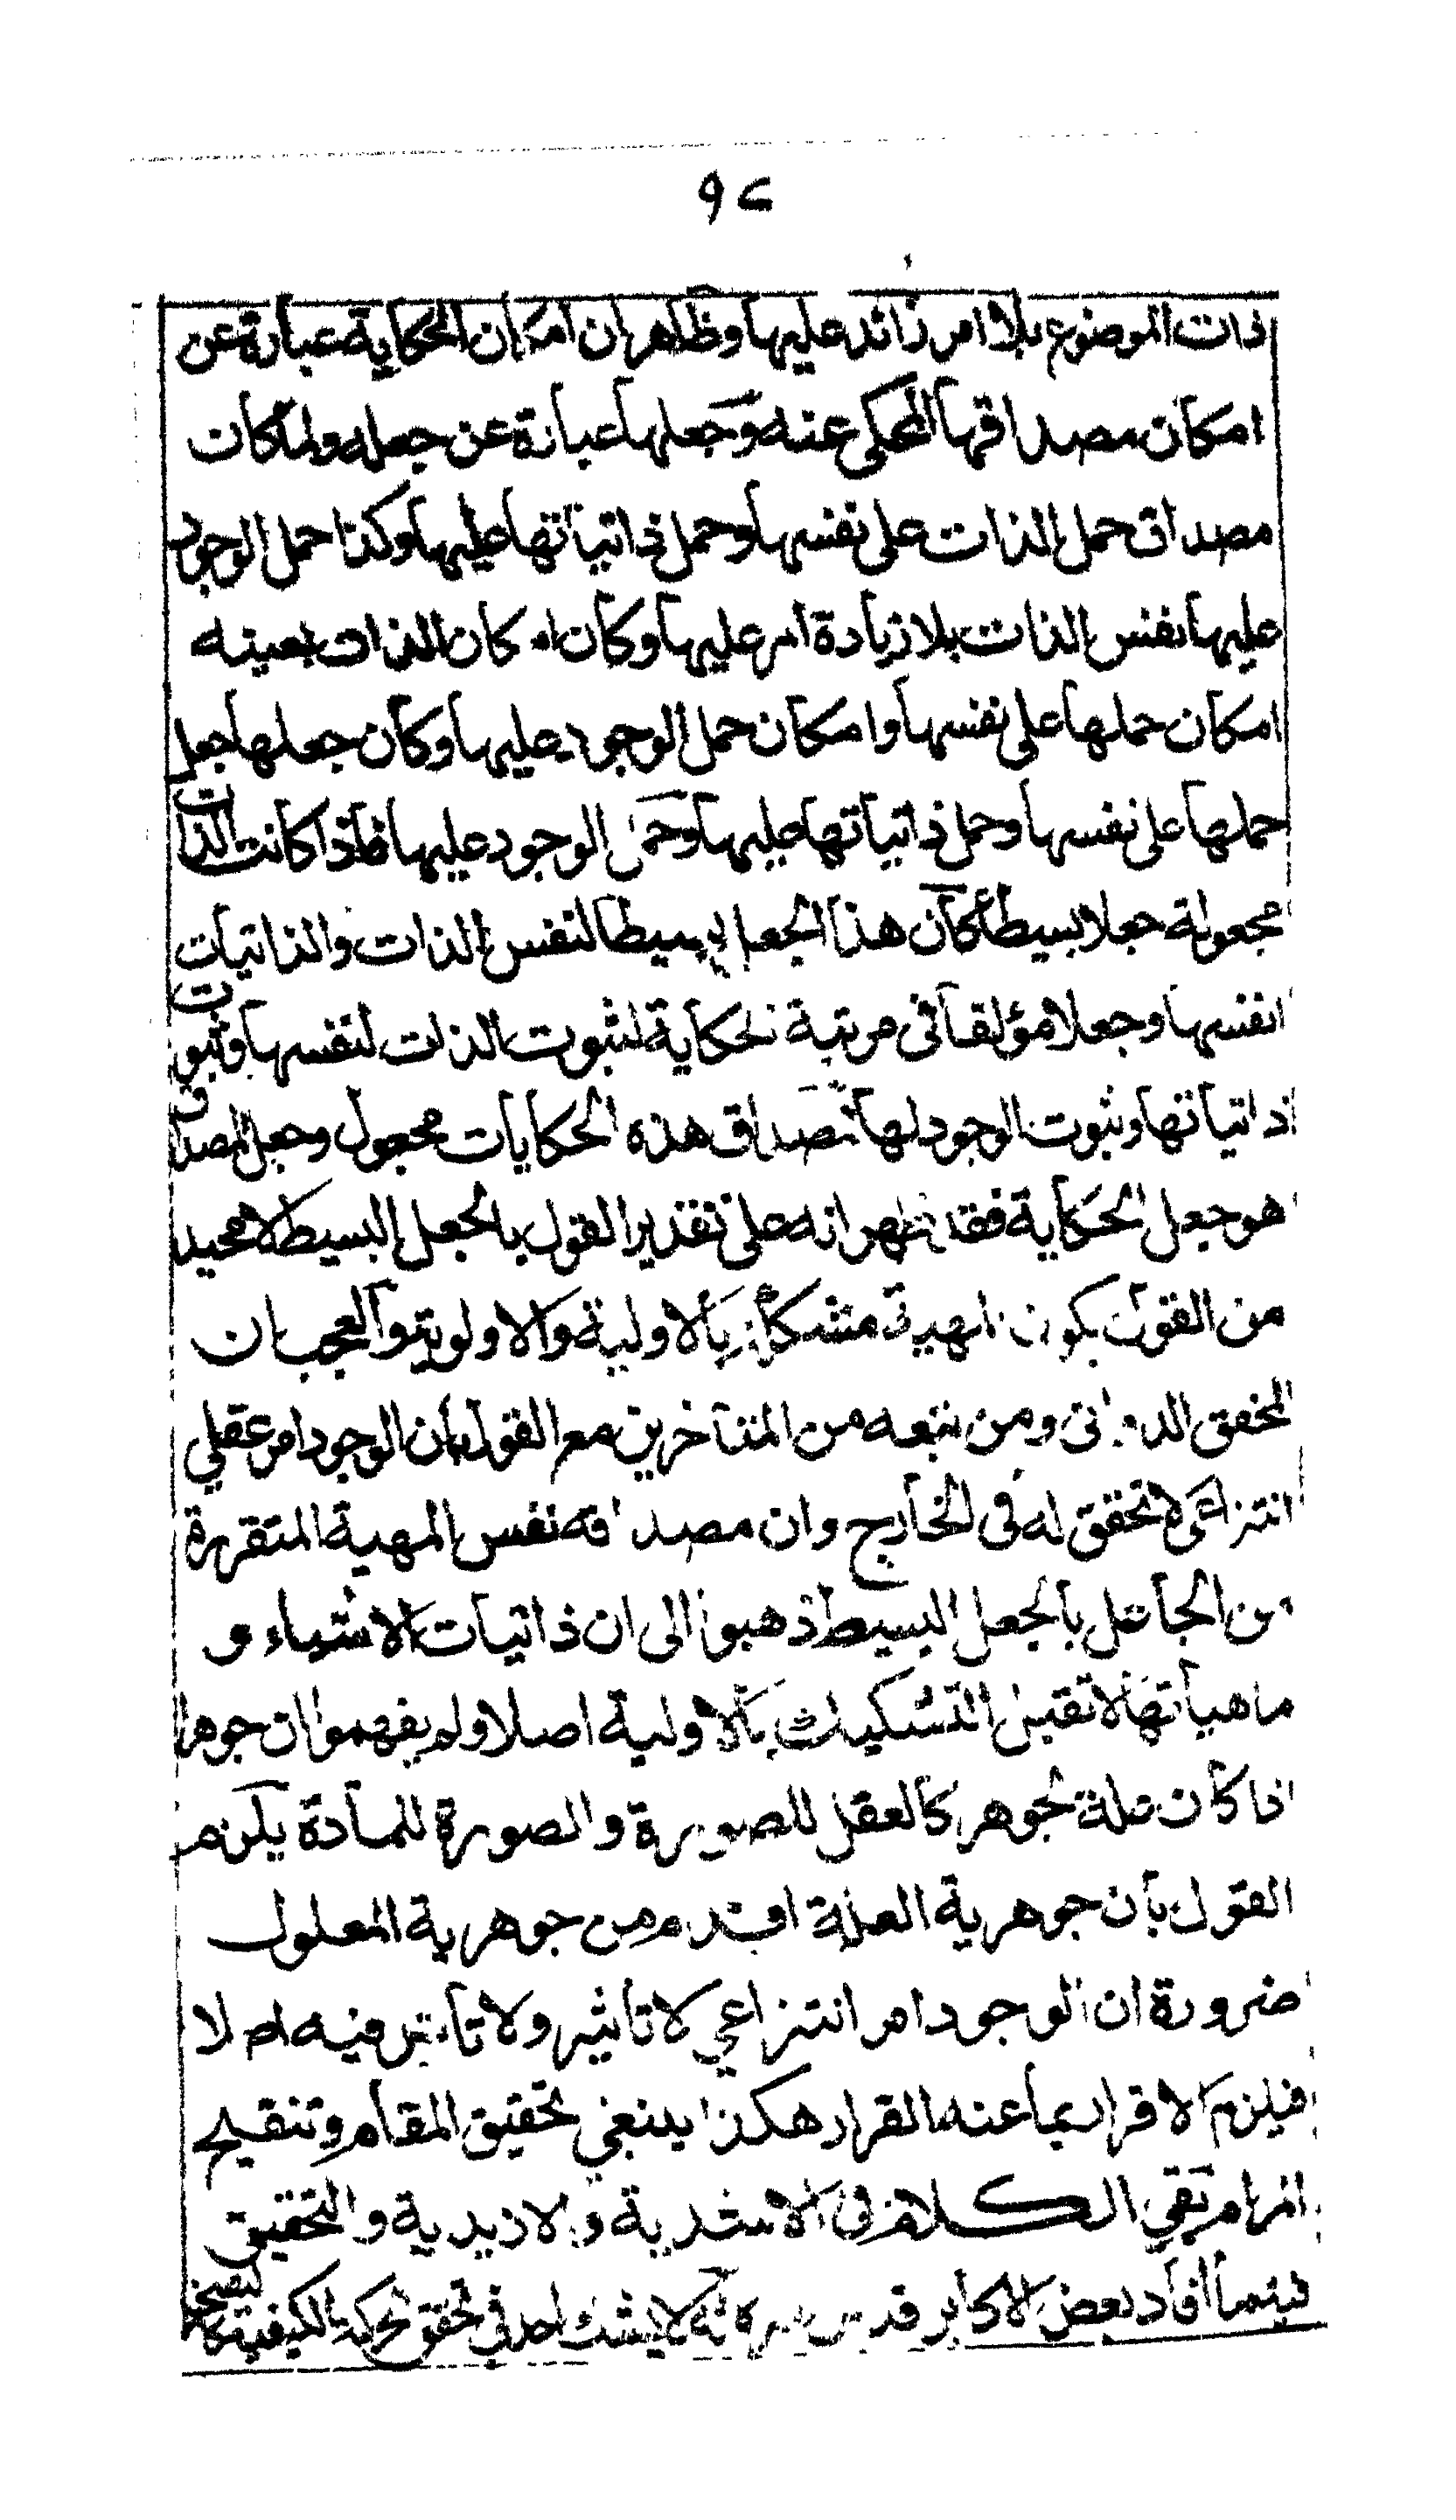 ٩٢
ذات الموضوع بلا امر زائد عليها وظاهر ان امكان الحكاية عبارة عن
امكان مصداقها المحكى عنه وجعلها عبارة عن جعله ولما كان
مصداق حمل الذات على نفسها وحمل ذاتياتها عليها وكذا حمل الوجود
عليها نفس الذات بلا زيادة امر عليها وكان امكان الذات بعينه
امكان حملها على نفسها وامكان حمل الوجود عليها وكان جعلها جعل
حملها على نفسها وحمل ذاتياتها عليها وحمل الوجود عليها فاذا كانت الذات
مجعولة جعلا بسيطا كان هذا الجعل بسيطا لنفس الذات والذاتيات
انفسها وجعلا مؤلفا فى مرتبة الحكاية لثبوت الذات لنفسها وثبوت
ذاتياتها وثبوت الوجود لها فمصداق هذه الحكايات مجعول وجعل المصداق
هو جعل الحكاية فقد ظهر انه على تقدير القول بالجعل البسيط لا محيد
من القول بكون المهية مشككة بالاولية والاولوية والعجب ان
المحقق الدوانى ومن تبعه من المتأخرين مع القول بان الوجود امر عقلي
انتزاعى لا تحقق له فى الخارج وان مصداقه نفس المهية المتقررة
من الجاعل بالجعل البسيط ذهبوا الى ان ذاتيات الاشياء و
ماهياتها لا تقبل التشكيك بالاولية اصلا ولم يفهموا ان جوهرا
اذا كان علة لجوهر كالعقل للصورة والصورة للمادة يلزم
القول بان جوهرية العلة اقدم من جوهرية المعلول
ضرورة ان الوجود امر انتزاعي لا تاثير ولا تأثر فيه اصلا
فيلزم الاقرار بما عنه الفرار هكذا ينبغي تحقيق المقام وتنقيح
المرام بقي الكلام فى الاشدية والازيدية والتحقيق
فيهما افاد بعض الاكابر قدس سره انه لا يشك احد في تحقق الحركة الكيفية كالتسخن